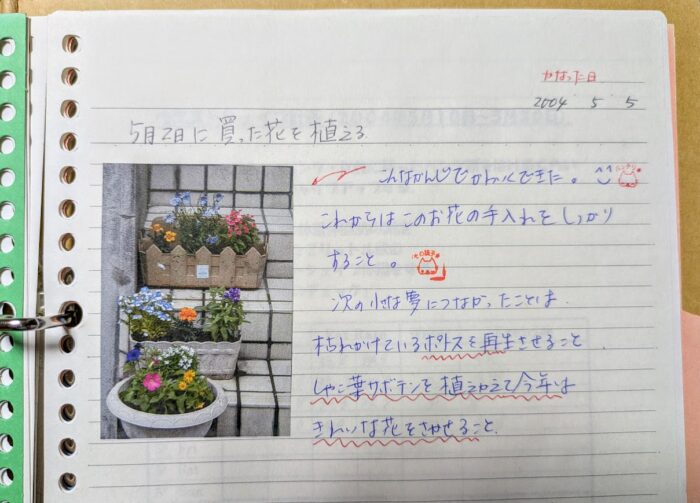 かなった日
2004 5 5
5月2日に買った花を植える
こんなかんじでかわいくできた。
これからはこのお花の手入れをしっかり
すること。
次の小さな夢につながったことは、
枯れかけているポトスを再生させること、
しゃこ葉サボテンを植えかえて今年は
きれいな花をさかせること、